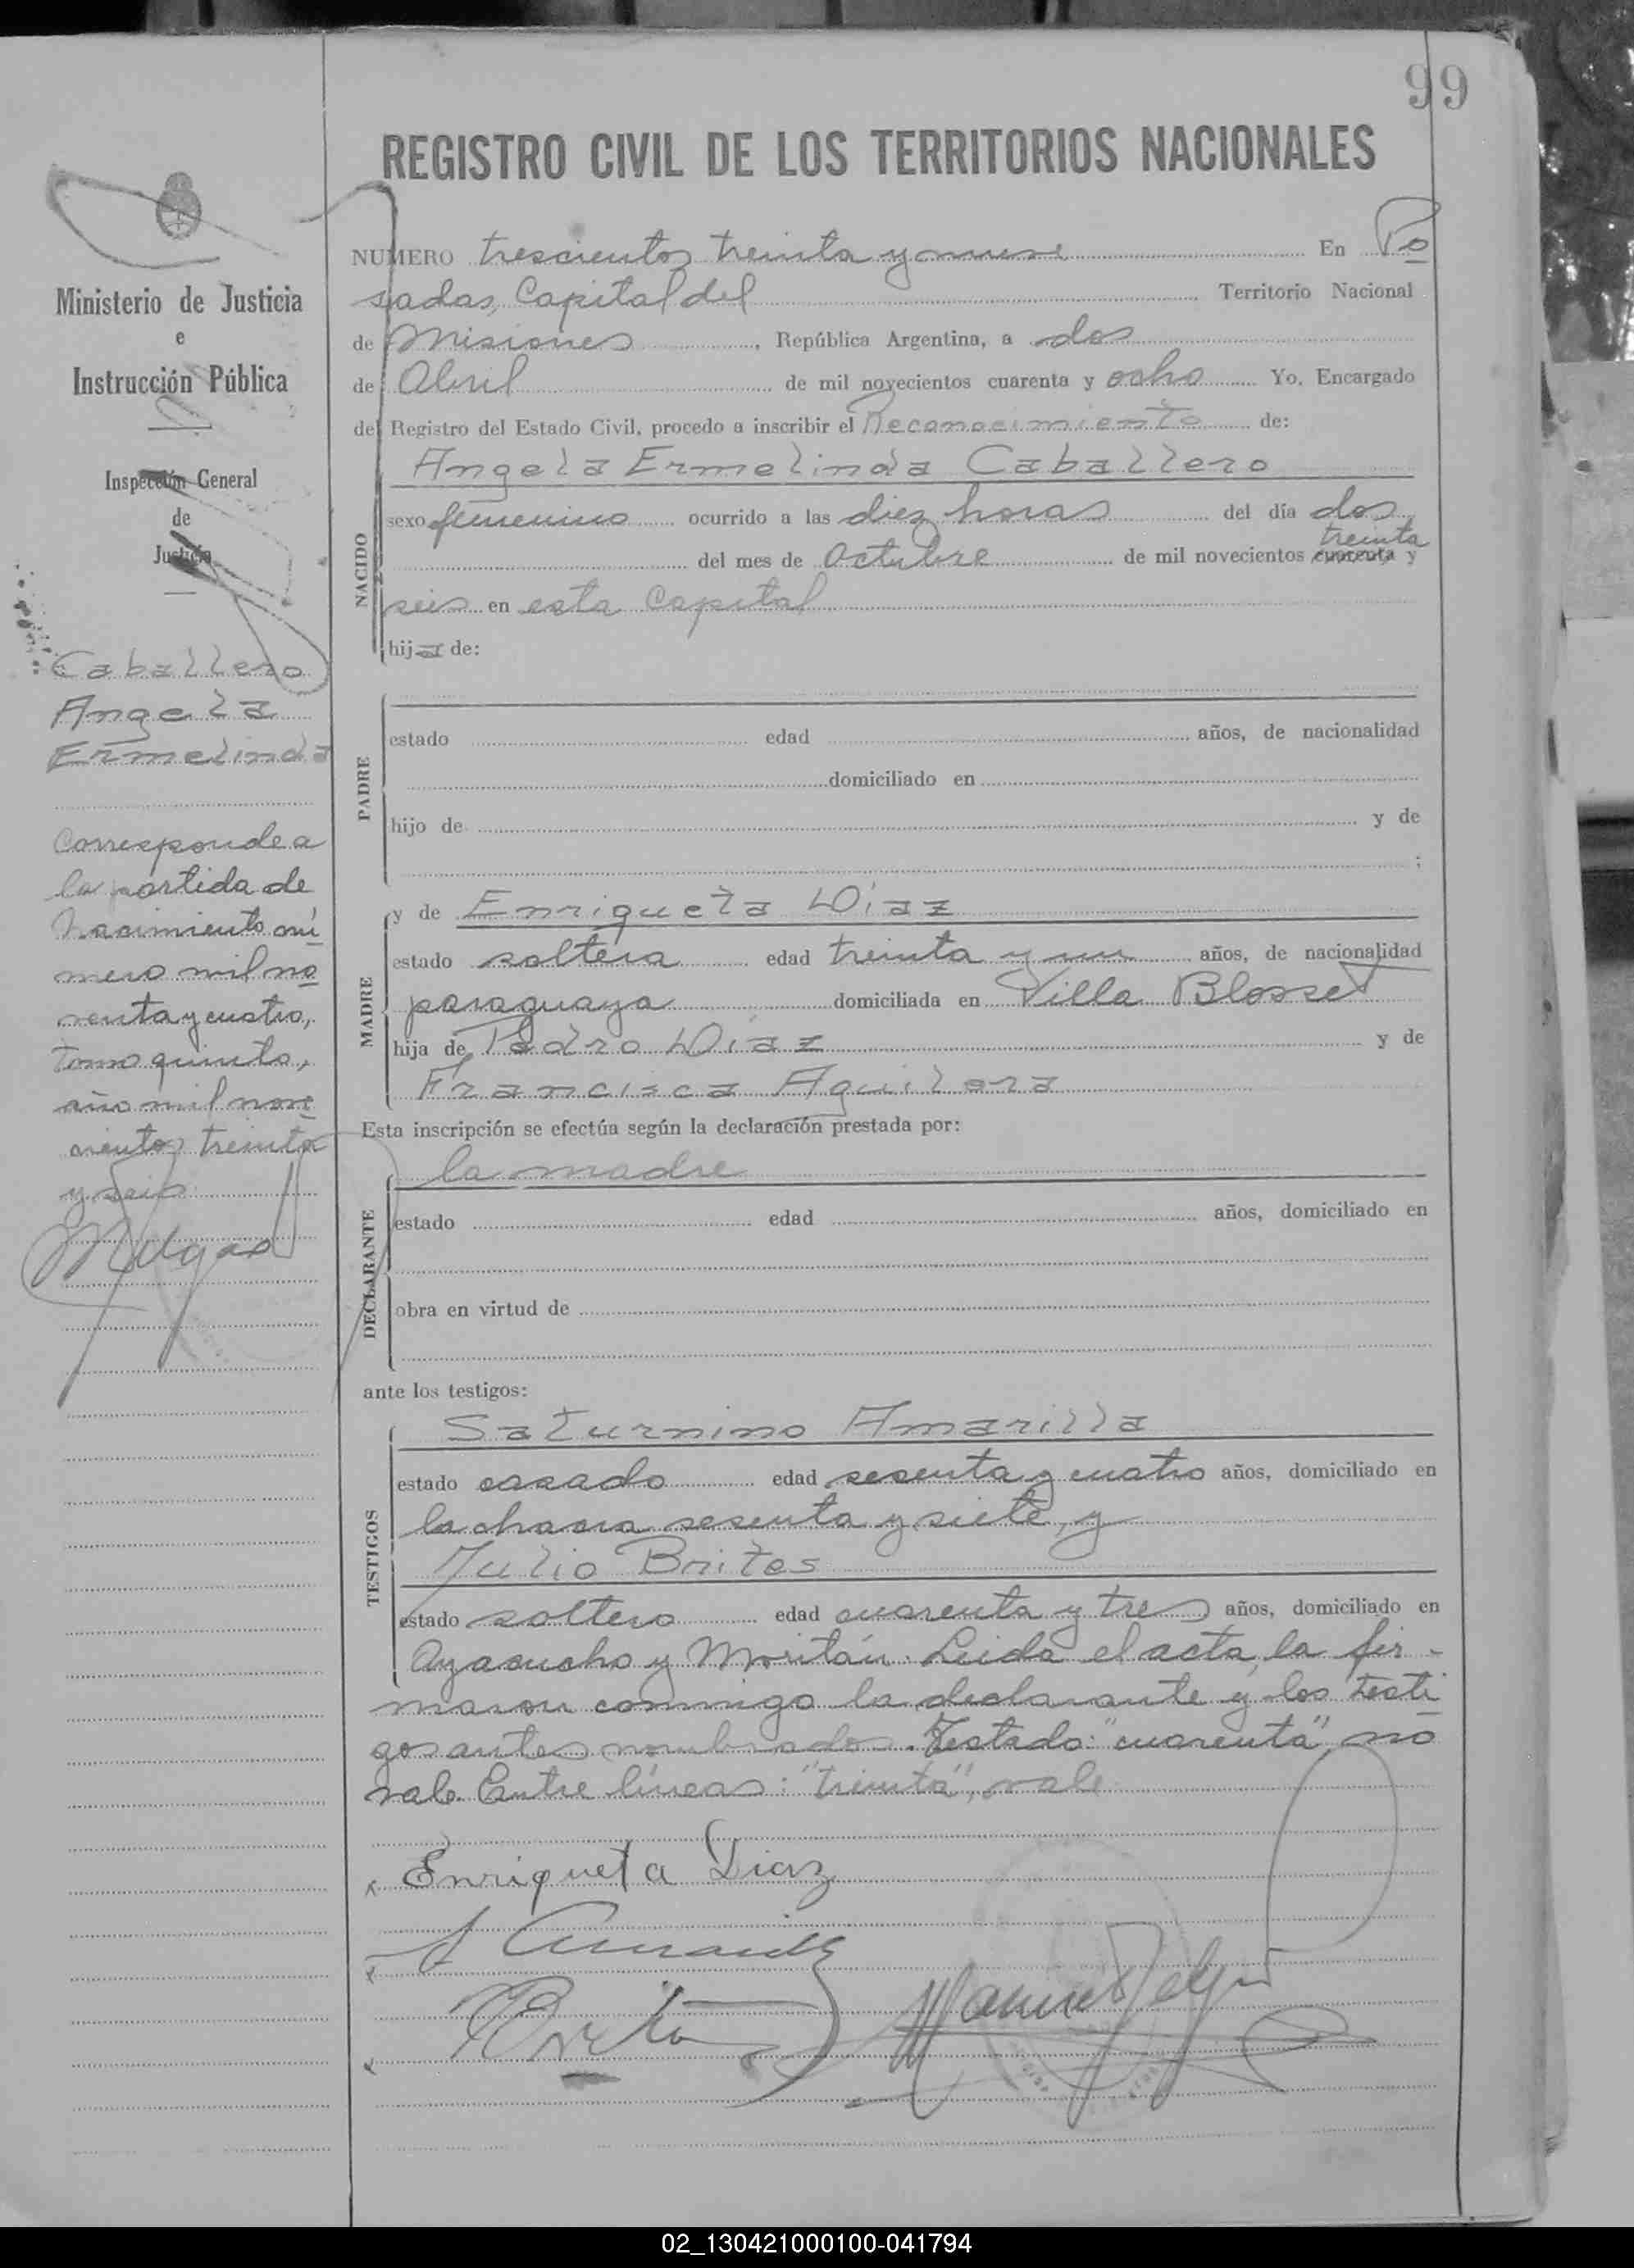 99
REGISTRO CIVIL DE LOS TERRITORIOS NACIONALES
Ministerio de Justicia
e
Instrucción Pública
Inspección General
de
Justicia
Caballero
Angela
Ermelinda
Corresponde a
la partida de
nacimiento nú
mero mil no
venta y cuatro,
tomo quinto,
año mil nove
cientos treinta
y seis
NUMERO trescientos treinta y nueve En Po
sadas, Capital del Territorio Nacional
de Misiones, República Argentina, a dos
de Abril de mil novecientos cuarenta y ocho Yo, Encargado
del Registro del Estado Civil, procedo a inscribir el Reconocimiento de:
Angela Ermelinda Caballero
NACIDO
sexo femenino ocurrido a las diez horas del día dos
treinta
del mes de Octubre de mil novecientos cuarenta y
seis en esta Capital
hija de:
PADRE
estado edad años, de nacionalidad
domiciliado en
hijo de y de
;
MADRE
y de Enriqueta Díaz
estado soltera edad treinta y un años, de nacionalidad
paraguaya domiciliada en Villa Blosset
hija de Pedro Díaz y de
Francisca Aguilera
Esta inscripción se efectúa según la declaración prestada por:
la madre
DECLARANTE
estado edad años, domiciliado en
obra en virtud de
ante los testigos:
TESTIGOS
Saturnino Amarilla
estado casado edad sesenta y cuatro años, domiciliado en
la chacra sesenta y siete, y
Julio Brites
estado soltero edad cuarenta y tres años, domiciliado en
Ayacucho y Moritán. Leida el acta, la fir-
maron conmigo la declarante y los testi
gos antes nombrados. Testado: "cuarenta", no
vale. Entre líneas: "treinta", vale
Enriqueta Diaz
02_130421000100-041794